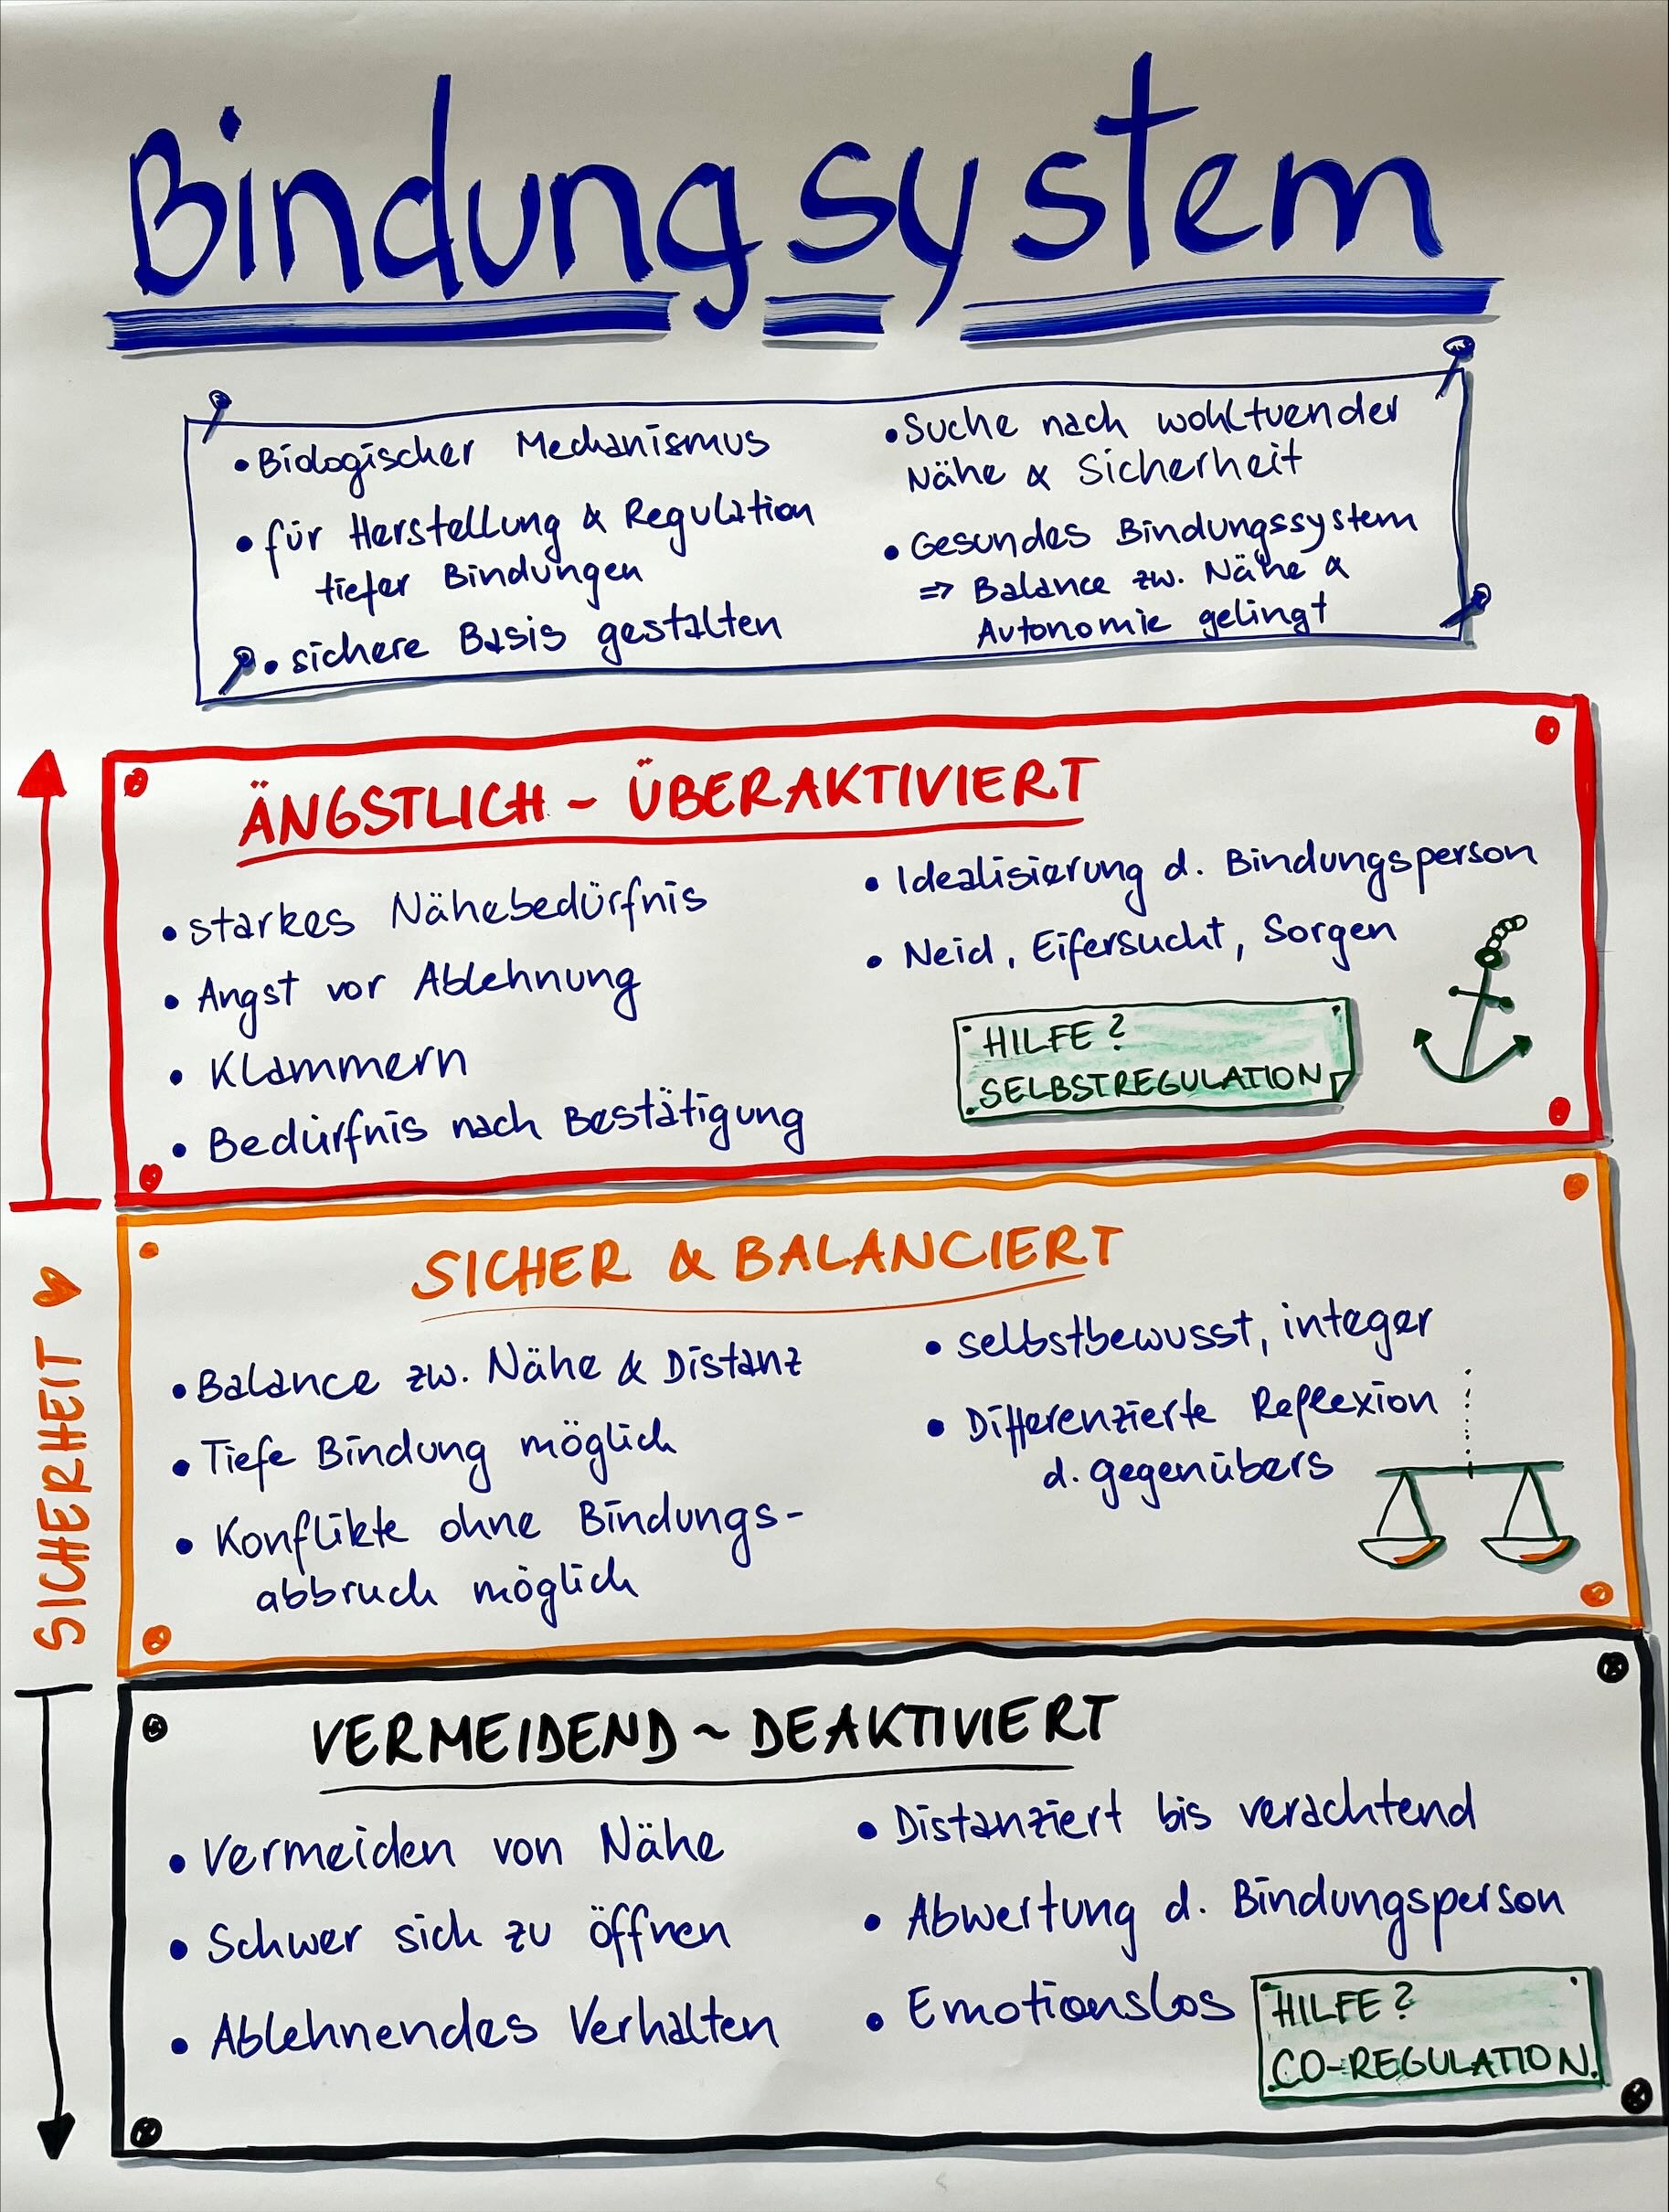 Bindungsystem
• Biologischer Mechanismus
• für Herstellung & Regulation
tiefer Bindungen
• sichere Basis gestalten
• Suche nach wohltuender
Nähe & Sicherheit
• Gesundes Bindungssystem
⇒ Balance zw. Nähe &
Autonomie gelingt
ÄNGSTLICH - ÜBERAKTIVIERT
• starkes Nähebedürfnis
• Angst vor Ablehnung
• Klammern
• Bedürfnis nach Bestätigung
• Idealisierung d. Bindungsperson
• Neid, Eifersucht, Sorgen
HILFE?
SELBSTREGULATION
SICHERHEIT
SICHER & BALANCIERT
• Balance zw. Nähe & Distanz
• Tiefe Bindung möglich
• Konflikte ohne Bindungs-
abbruch möglich
• selbstbewusst, integer
• Differenzierte Reflexion
d. gegenübers
VERMEIDEND ~ DEAKTIVIERT
• Vermeiden von Nähe
• Schwer sich zu öffnen
• Ablehnendes Verhalten
• Distanziert bis verachtend
• Abwertung d. Bindungsperson
• Emotionslos
HILFE?
CO-REGULATION